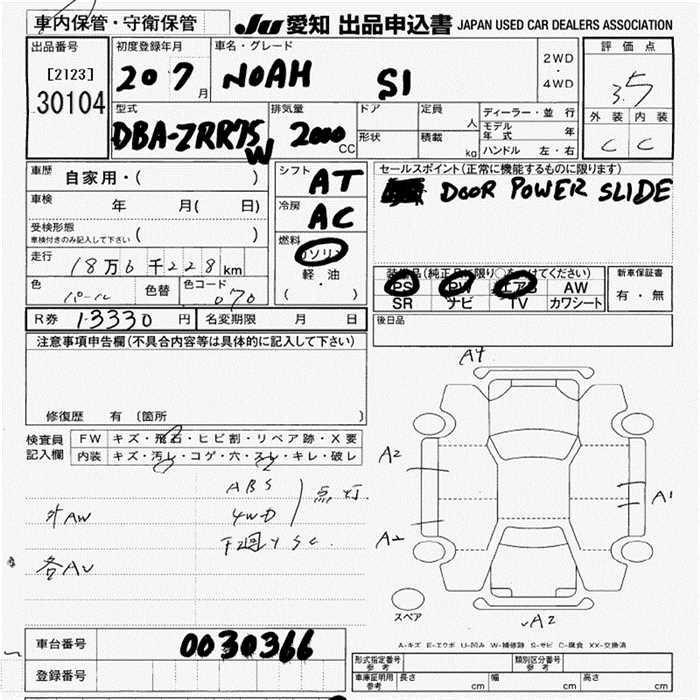 車内保管・守衛保管
JU 愛知 出品申込書 JAPAN USED CAR DEALERS ASSOCIATION
出品番号 初度登録年月 車名・グレード 評価点
[2123] 2WD
30104 20 7月 NOAH SI ・ 3.5
4WD
外装 内装
型式 排気量 ドア 定員 人 ディーラー・並行
DBA-ZRR75W 2000CC 形状 積載 kg モデル年式 年 C C
ハンドル 左・右
車歴 自家用・( ) シフト AT セールスポイント(正常に機能するものに限ります)
車検 年 月( 日) 冷房 AC DOOR POWER SLIDE
受検形態
車検付きのみ記入して下さい ( ) 燃料 ガソリン
走行 18万6千228km 軽・油
色 パール 色替 色コード 070 ( )
装備品(純正品に限り○をつけてください) 新車保証書
PS PW エアB AW 有・無
SR ナビ TV カワシート
R券 13330円 名変期限 月 日 後日品
注意事項申告欄(不具合内容等は具体的に記入して下さい)
修復歴 有 (箇所 )
検査員記入欄 FW キズ・飛石・ヒビ割・リペア跡・X要
内装 キズ・汚レ・コゲ・穴・スレ・キレ・破レ
ABS
4WD 点灯
外AW
各AU
A4
A2
A1
A2
スペア
A2
A-キズ E-エクボ U-凹み W-補修跡 S-サビ C-腐食 XX-交換済
車台番号 0030366
登録番号
形式指定番号 参考 類別区分番号 参考
車庫証明用 参考 長さ cm 幅 cm 高さ cm